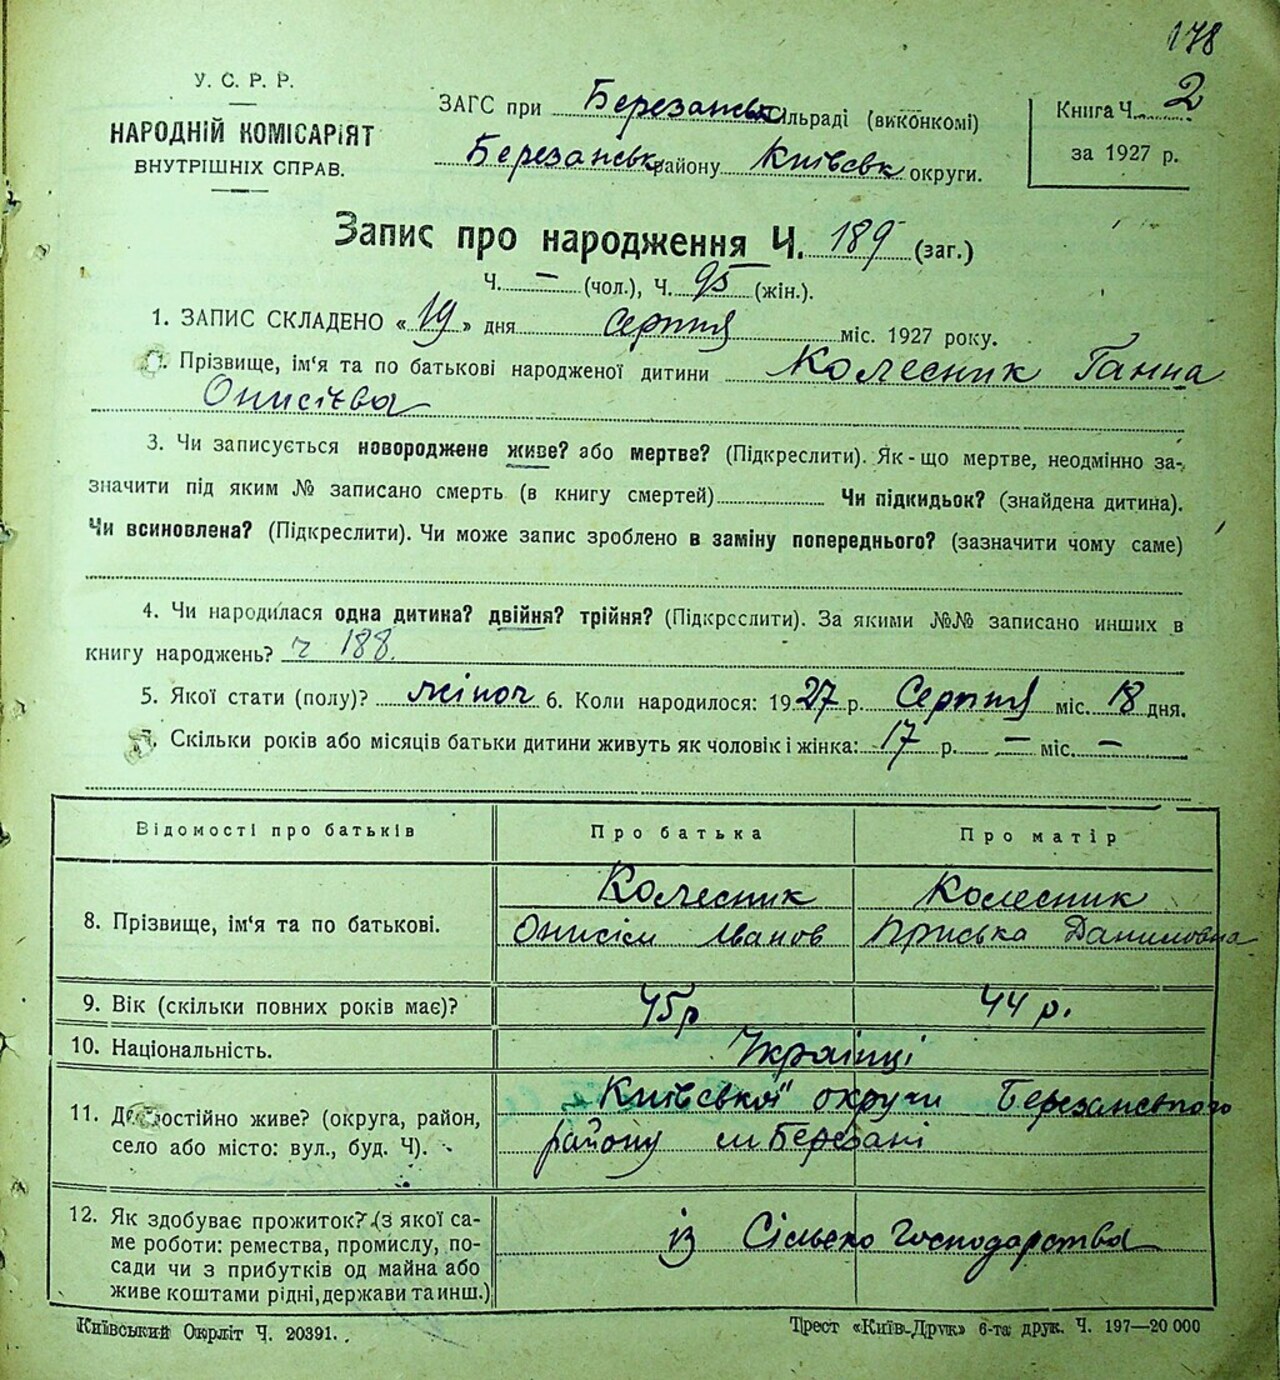 178
У. С. Р. Р.
НАРОДНІЙ КОМІСАРІЯТ
ВНУТРІШНІХ СПРАВ.
ЗАГС при Березанськ сільраді (виконкомі)
Березанськ району Київськ округи.
Книга Ч. 2
за 1927 р.
Запис про народження Ч. 189 (заг.)
Ч. — (чол.), Ч. 95 (жін.).
1. ЗАПИС СКЛАДЕНО «19» дня серпня міс. 1927 року.
Прізвище, ім'я та по батькові народженої дитини Колесник Ганна
Онисівва
3. Чи записується новороджене живе? або мертве? (Підкреслити). Як-що мертве, неодмінно за-
значити під яким № записано смерть (в книгу смертей) Чи підкидьок? (знайдена дитина).
Чи всиновлена? (Підкреслити). Чи може запис зроблено в заміну попереднього? (зазначити чому саме)
4. Чи народилася одна дитина? двійня? трійня? (Підкреслити). За якими №№ записано инших в
книгу народжень? ч 188.
5. Якої стати (полу)? жіноч 6. Коли народилося: 1927 р. Серпня міс. 18 дня.
7. Скільки років або місяців батьки дитини живуть як чоловік і жінка: 17 р. — міс. —
Відомості про батьків
Про батька
Про матір
8. Прізвище, ім'я та по батькові.
Колесник
Онисім Іванов
Колесник
Приська Даниловна
9. Вік (скільки повних років має)?
45 р
44 р.
10. Національність.
Українці
11. Де постійно живе? (округа, район,
село або місто: вул., буд. Ч).
Київської округи Березанського
району м Березані
12. Як здобуває прожиток? (з якої са-
ме роботи: ремества, промислу, по-
сади чи з прибутків од майна або
живе коштами рідні, держави та инш.)
із Сільско Господарства
Київський Окрліт Ч. 20391.
Трест «Київ-Друк» 6-та друк. Ч. 197—20 000